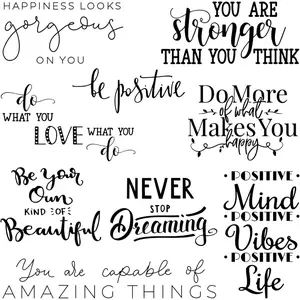 HAPPINESS LOOKS
gorgeous
ON YOU
YOU ARE
stronger
THAN YOU THINK
be positive
do
WHAT YOU
LOVE WHAT YOU
do
Do More
of what
Makes You
happy
Be Your
Own
KIND OF
Beautiful
NEVER
STOP
Dreaming
POSITIVE
Mind
POSITIVE
Vibes
POSITIVE
Life
You are capable of
AMAZING THINGS